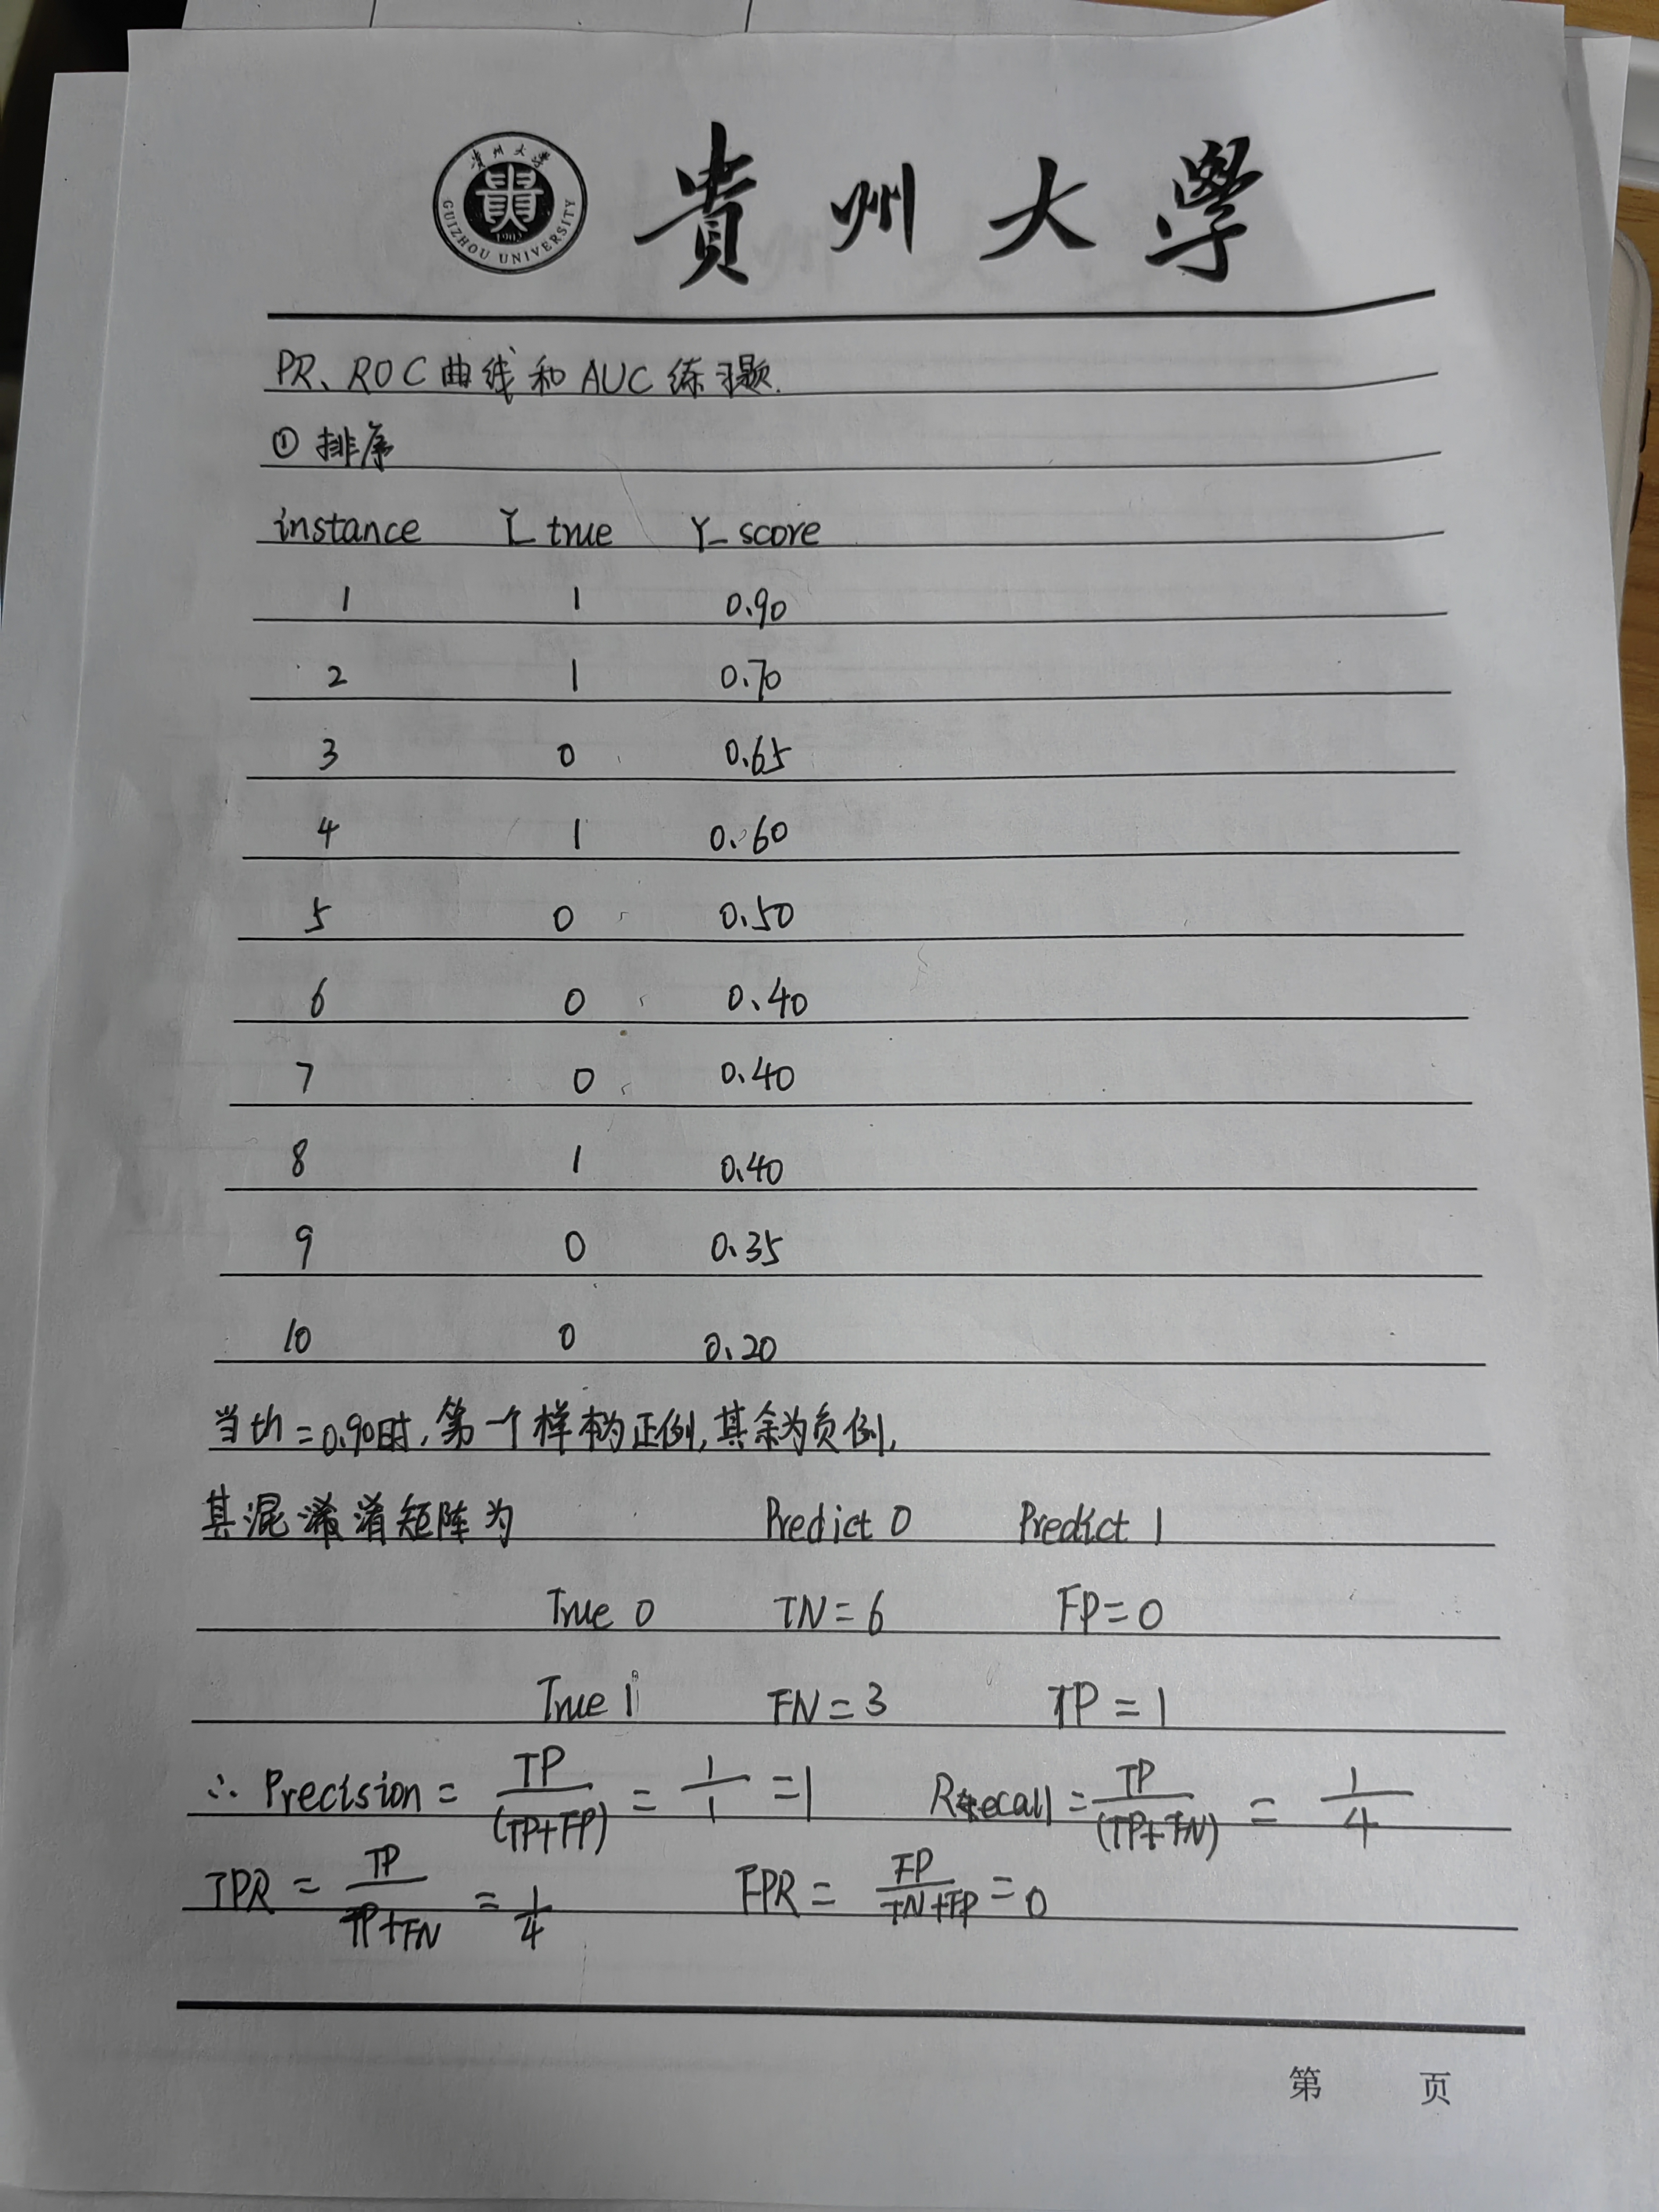 貴州大學
GUIZHOU UNIVERSITY
1902
貴州大學
PR、ROC曲线和AUC练习题.
① 排序
instance Y_true Y_score
1 1 0.90
2 1 0.70
3 0 0.65
4 1 0.60
5 0 0.50
6 0 0.40
7 0 0.40
8 1 0.40
9 0 0.35
10 0 0.20
当th=0.90时,第一个样本为正例,其余为负例,
其混淆矩阵为 Predict 0 Predict 1
True 0 TN=6 FP=0
True 1 FN=3 TP=1
∴ Precision = TP/(TP+FP) = 1/1 =1 Recall = TP/(TP+FN) = 1/4
TPR = TP/TP+FN = 1/4 FPR = FP/TN+FP = 0
第 页